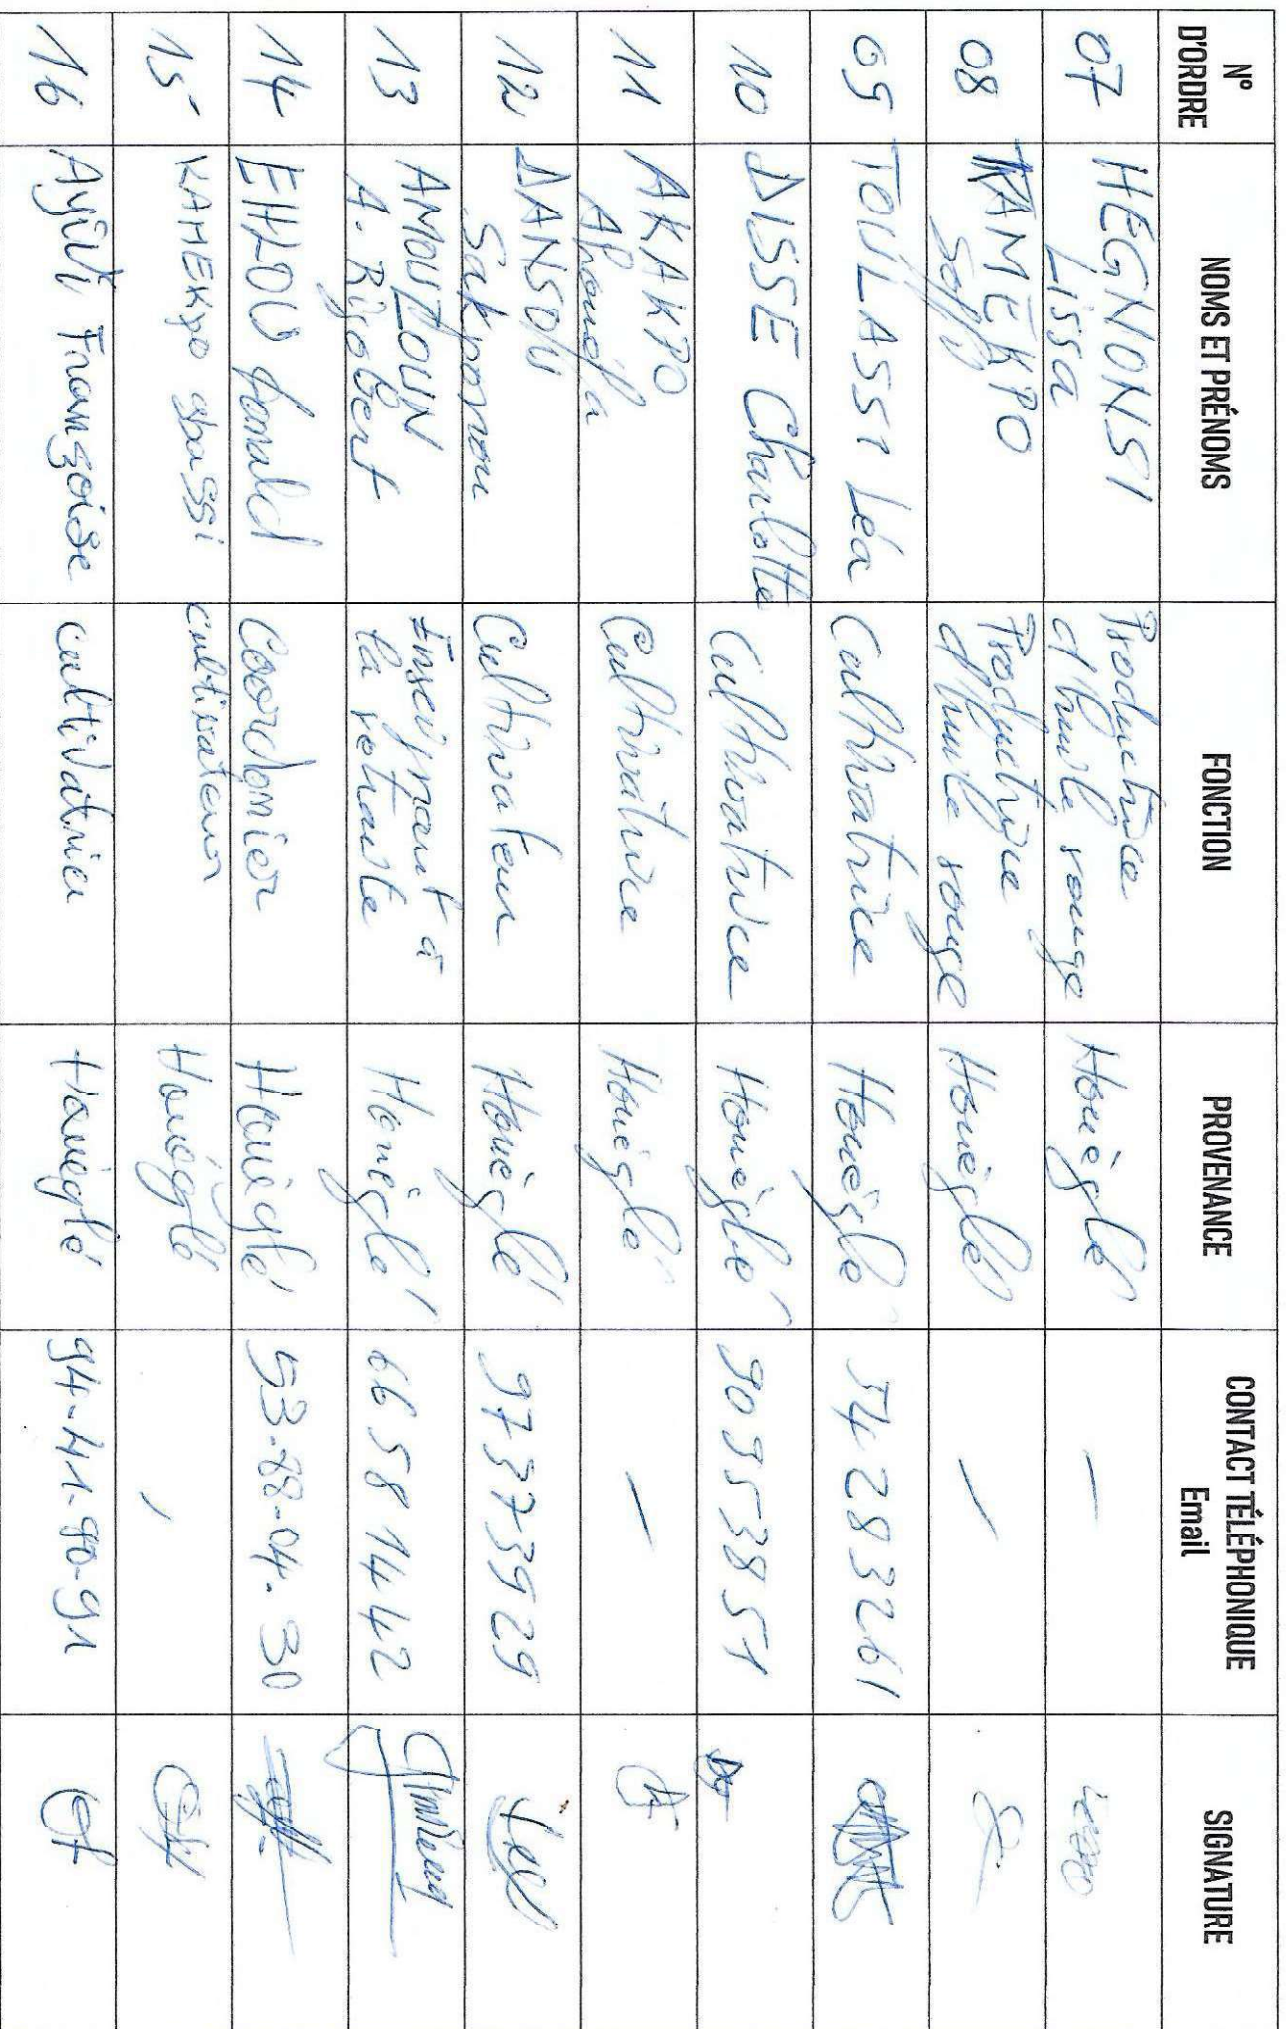 N° D'ORDRE NOMS ET PRÉNOMS FONCTION PROVENANCE CONTACT TÉLÉPHONIQUE Email SIGNATURE
07 HEGNONSI Lissa Productrice d'huile rouge Houèglé —
08 KAMEKPO Productrice d'huile rouge Houèglé —
09 TOVILASSI Léa Cultivatrice Houèglé 54283261
10 DISSE Charlotte Cultivatrice Houèglé 90953851
11 AKAKPO Cultivatrice Houèglé —
12 DANSOU Sakponou Cultivateur Houèglé 97373929
13 AMOUZOUN A. Rigobert Enseignant à la retraite Houèglé 66581442
14 EHLOU donald Coordonier Houèglé 53-88-04-30
15 KAMEKpo gbassi cultivateur Houéglé
16 Françoise cultivatrice Houèglé 94-41-90-91